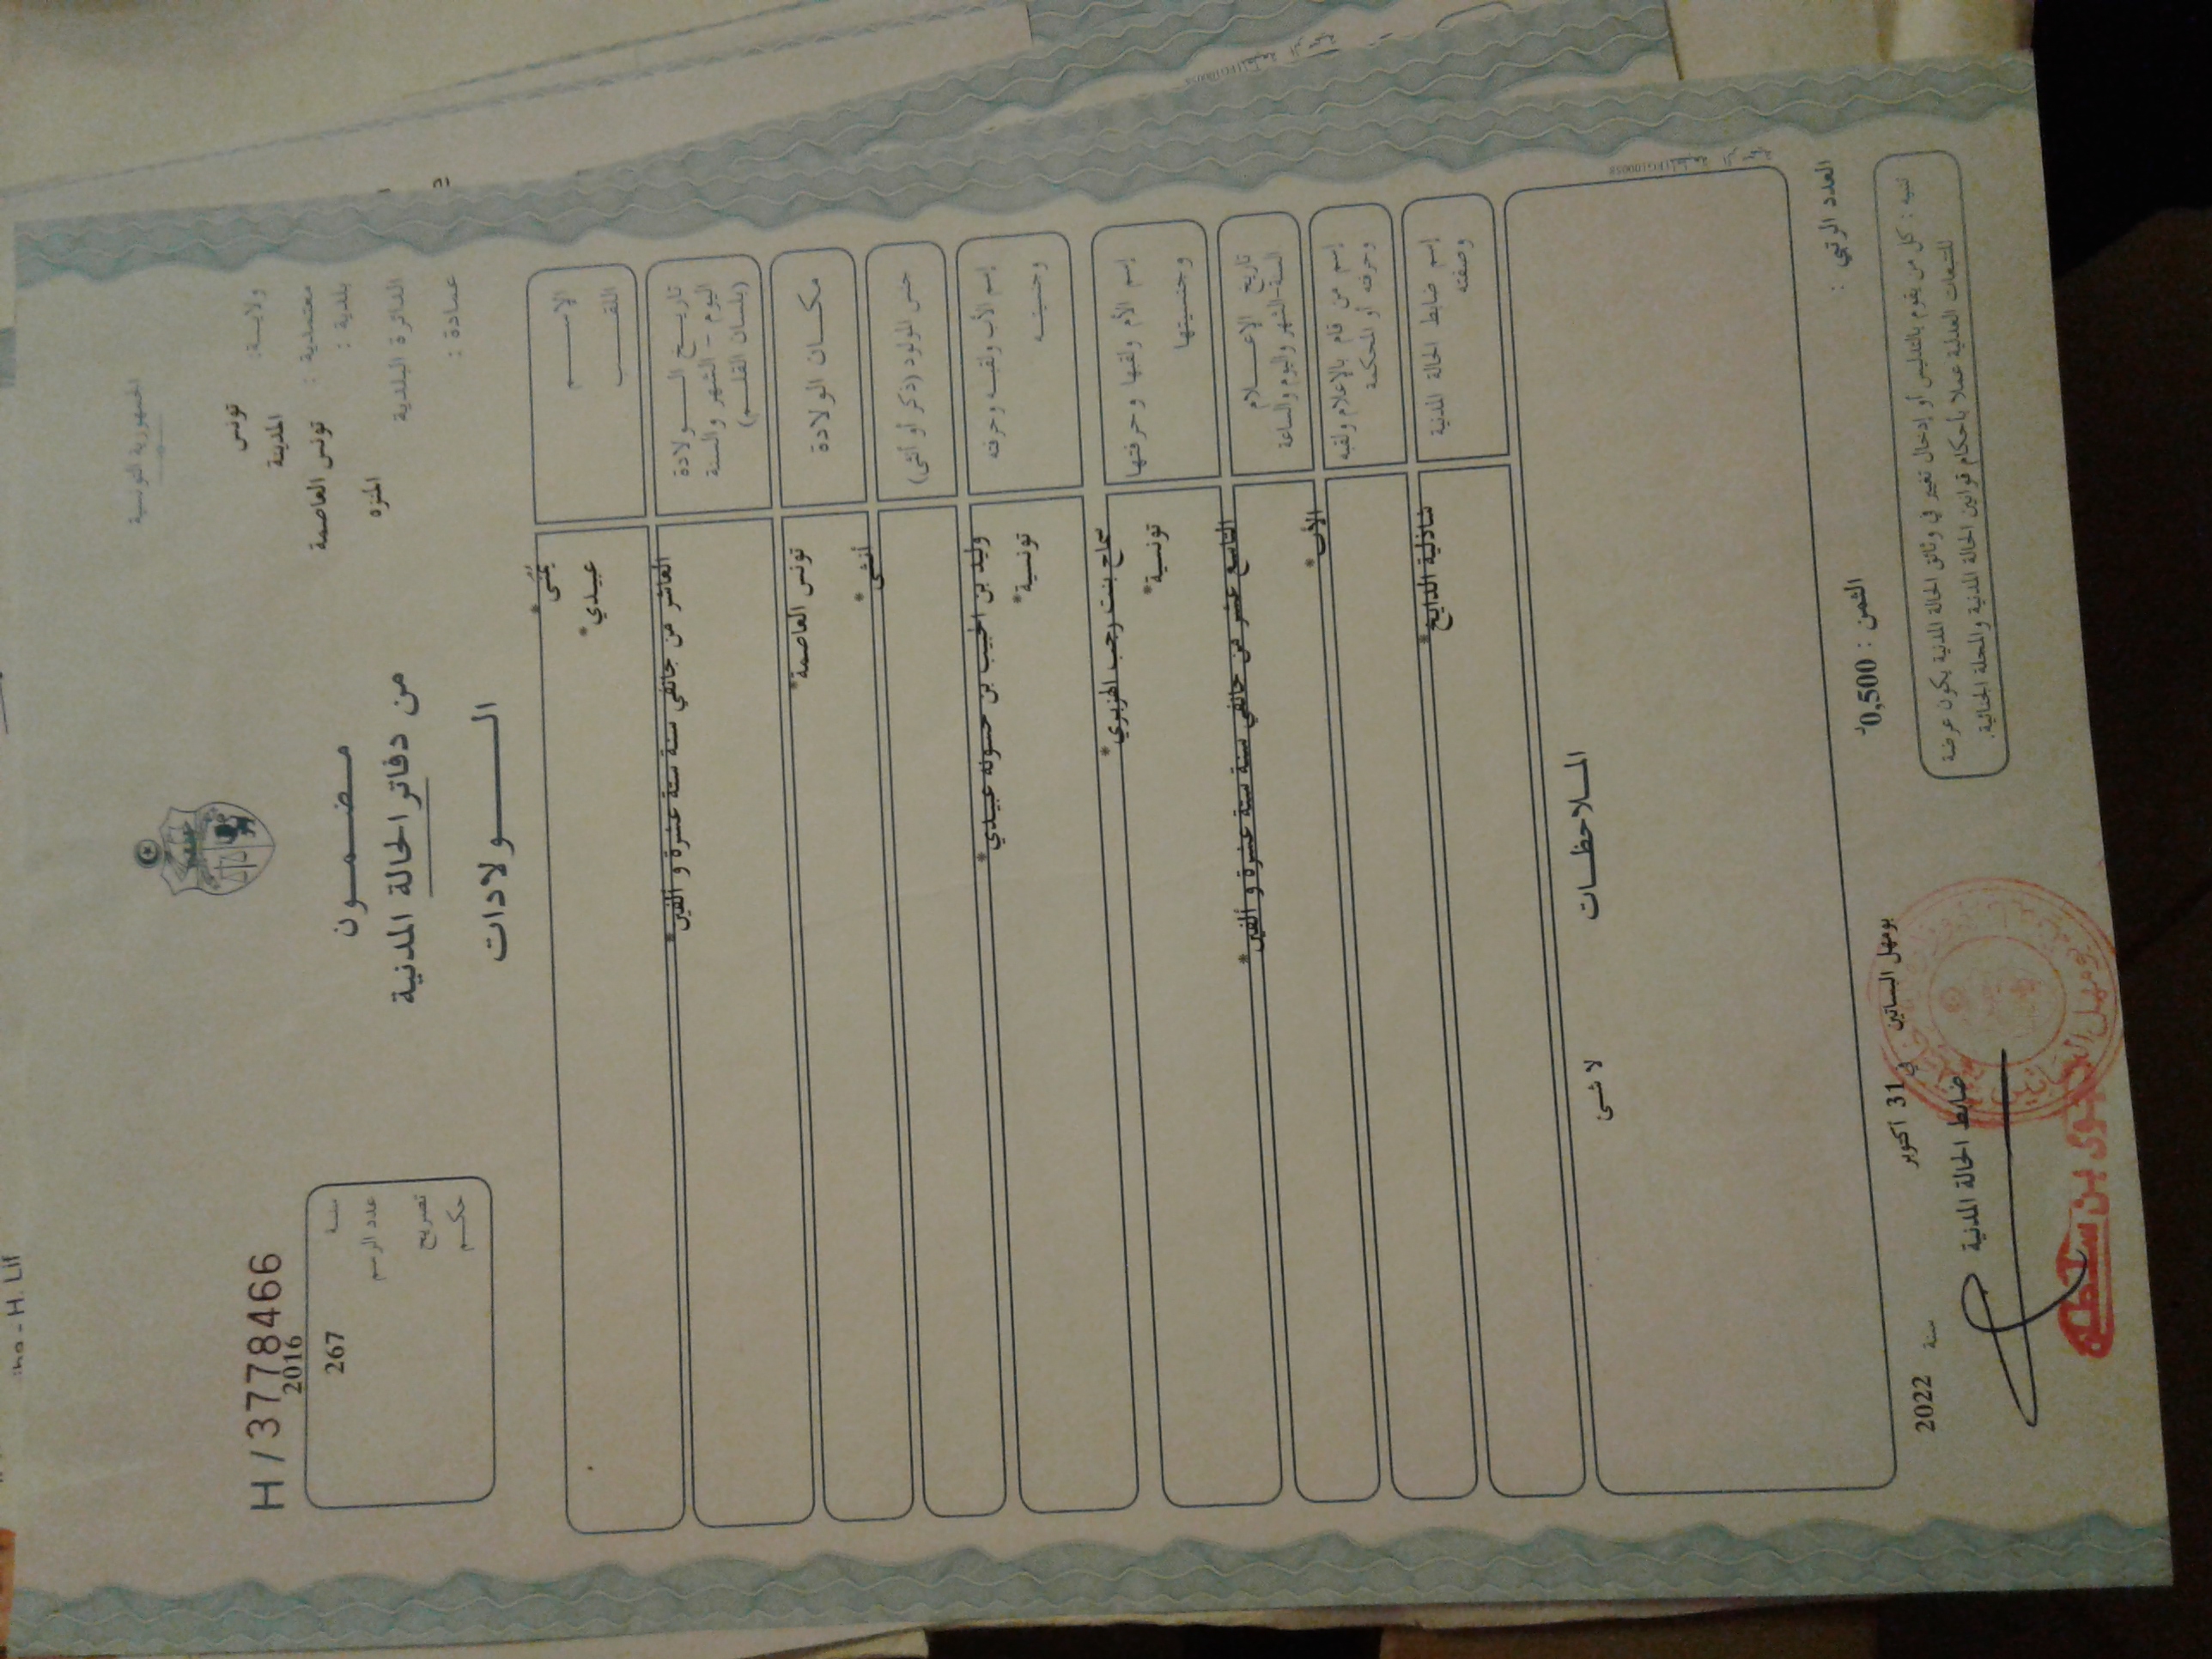 الجمهورية التونسية
ولايـة: تونس
بلدية : المدينة
معتمدية : تونس العاصمة
الدائرة البلدية المنزه
عمادة :
مـضـمـون
من دفاتر الحالة المدنية
الـــولادات
H/37778466
سنـة 2016
عدد الرسم 267
تصريح
حكـم
الإســـم يُمْنَى*
اللقـــب عبيدي*
تاريــخ الـــولادة
اليوم - الشهر والسنة
(بلسان القلــم)
العاشر من جانفي سنة ستة عشرة و ألفين*
مكــان الولادة تونس العاصمة*
جنس المولود (ذكر أو أنثى) أنثى*
إسم الأب ولقبـه وحرفته وليد بن الحبيب بن حسونة عبيدي*
وجنسيتـه تونسية*
إسم الأم ولقبها وحرفتها سماح بنت رجب الهزبري*
وجنسيتها تونسية*
تاريخ الإعـــلام
السنة-الشهر واليوم والساعة
التاسع عشر من جانفي سنة ستة عشرة و ألفين*
إسم من قام بالإعلام ولقبه
وحرفته أو المحكمة
الأب*
إسم ضابط الحالة المدنية
وصفته
شاذلية الدايخ*
المـلاحظـات
لا شئ
العدد الرتبي :
الثمن : 0,500د
بومهل البساتين في 31 أكتوبر سنة 2022
ضابط الحالة المدنية
تنبيه : كل من يقوم بالتدليس أو إدخال تغيير في وثائق الحالة المدنية يكون عرضة
للتتبعات العدلية عملا بأحكام قوانين الحالة المدنية والمجلة الجنائية.